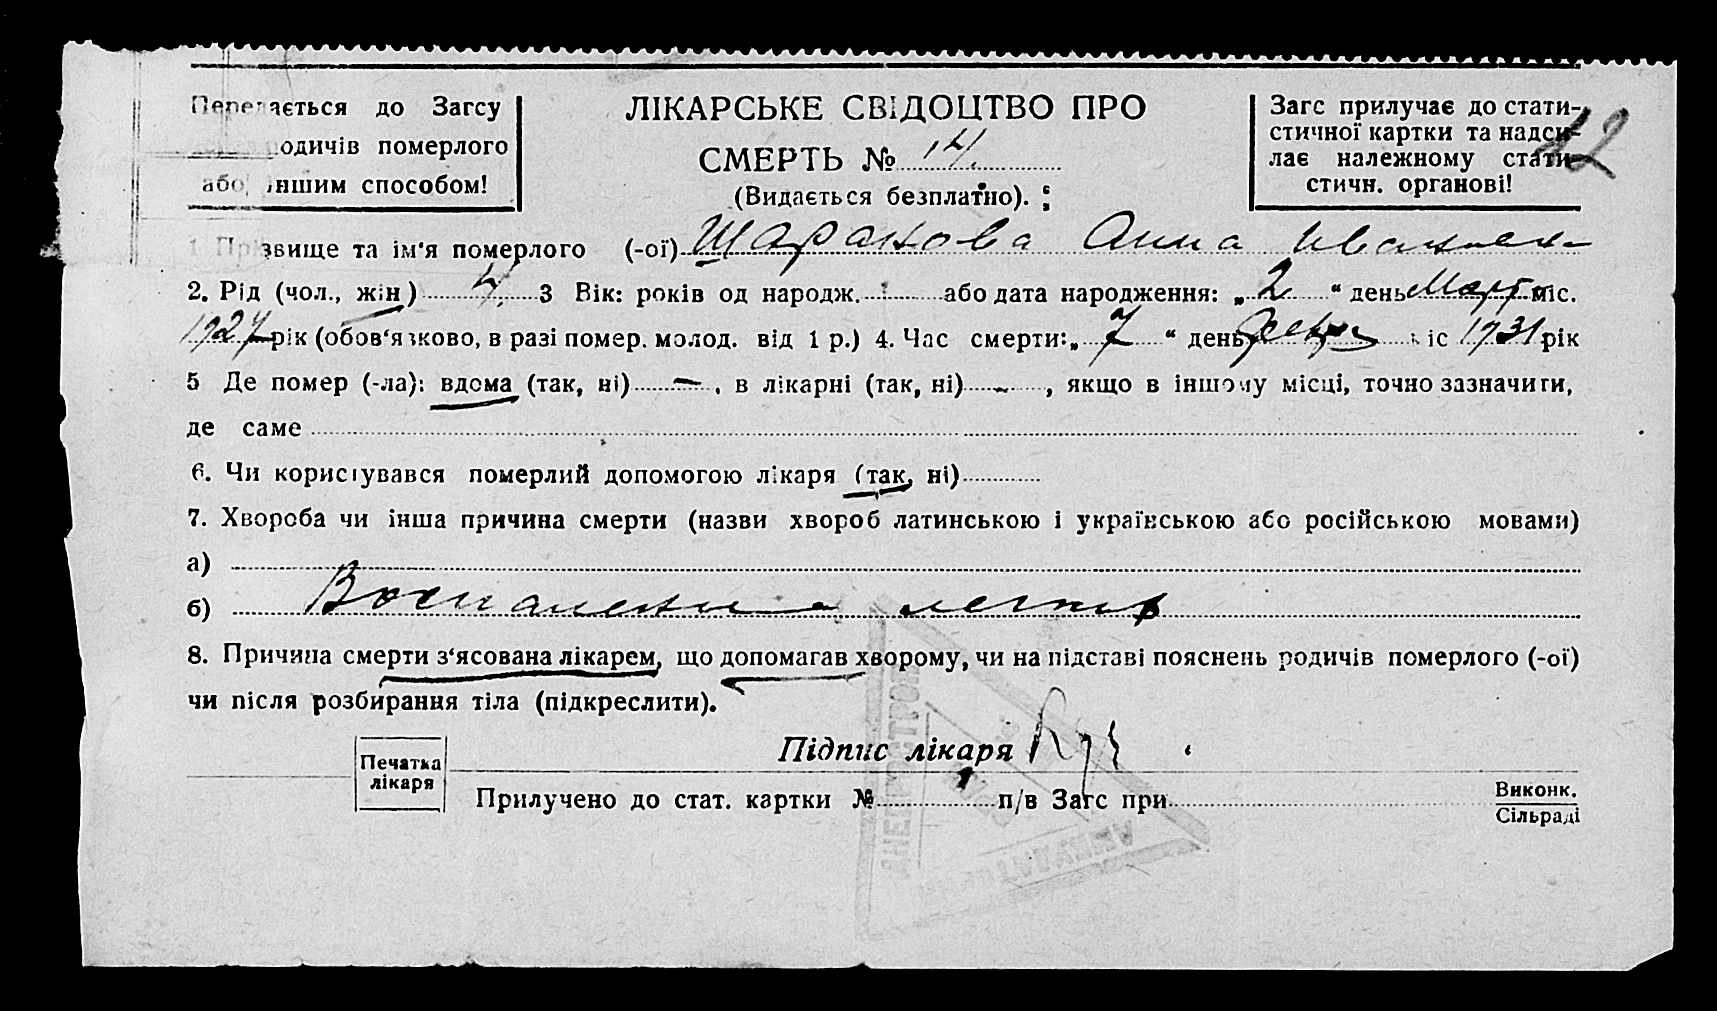 Передається до Загсу
родичів померлого
або іншим способом!
ЛІКАРСЬКЕ СВІДОЦТВО ПРО
СМЕРТЬ № 14.
(Видається безплатно).
Загс прилучає до стати-
стичної картки та надси-
лає належному стати-
стичн. органові!
12
1 Прізвище та ім'я померлого (-ої) Шаранова Анна Ивановн
2. Рід (чол., жін) 3 Вік: років од народж. або дата народження: „ 2 “ день Март міс.
1927 рік (обов'язково, в разі помер. молод. від 1 р.) 4. Час смерти: „ 7 “ день Февр міс 1931 рік
5 Де помер (-ла): вдома (так, ні) — , в лікарні (так, ні) - , якщо в іншому місці, точно зазначити,
де саме
6. Чи користувався померлий допомогою лікаря (так, ні)
7. Хвороба чи інша причина смерти (назви хвороб латинською і українською або російською мовами)
а)
б) Воспаление легких
8. Причина смерти з'ясована лікарем, що допомагав хворому, чи на підставі пояснень родичів померлого (-ої)
чи після розбирання тіла (підкреслити).
Підпис лікаря
Печатка
лікаря
Прилучено до стат. картки № п/в Загс при
Виконк.
Сільраді